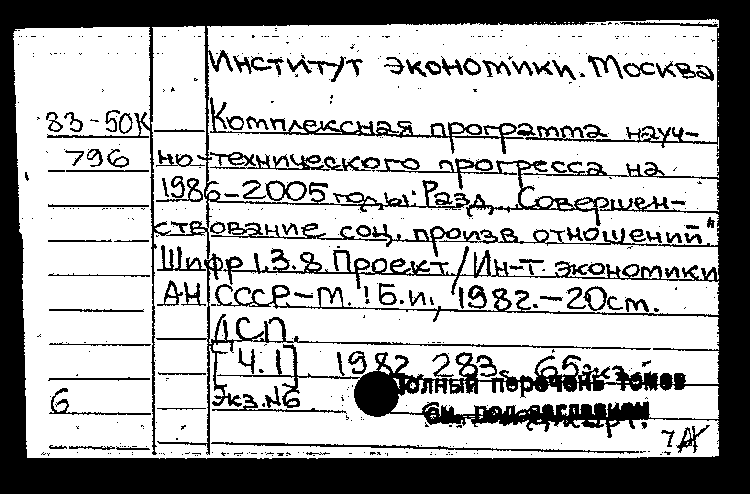 Институт экономики. Москва
83-50К Комплексная программа науч-
796 но-технического прогресса на
1986-2005 годы: Разд. „Совершен-
ствование соц. произв. отношений."
Шифр 1.3.8. Проект / Ин-т экономики
АН СССР.-М.: Б.и., 1982.-20см.
ДСП.
[Ч.1] 1982 283с. 65экз.
6 Экз.№6
Полный перечень томов
См. под заглавием